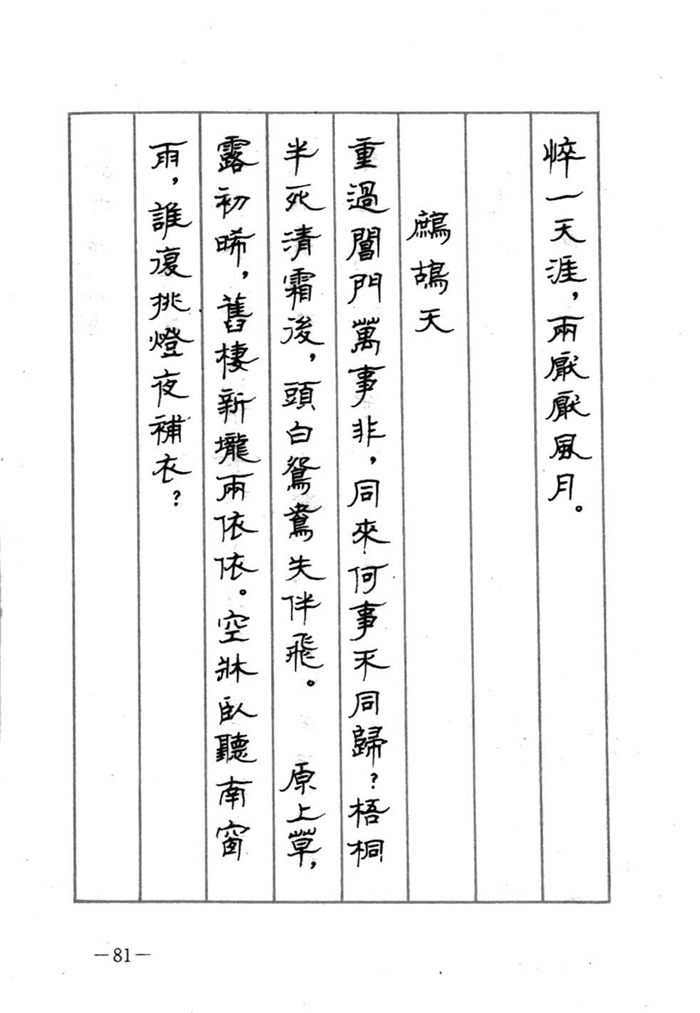 悴一天涯，兩厭厭風月。
鷓鴣天
重過閶門萬事非，同來何事不同歸？梧桐
半死清霜後，頭白鴛鴦失伴飛。　原上草，
露初晞，舊棲新壠兩依依。空牀臥聽南窗
雨，誰復挑燈夜補衣？
—81—